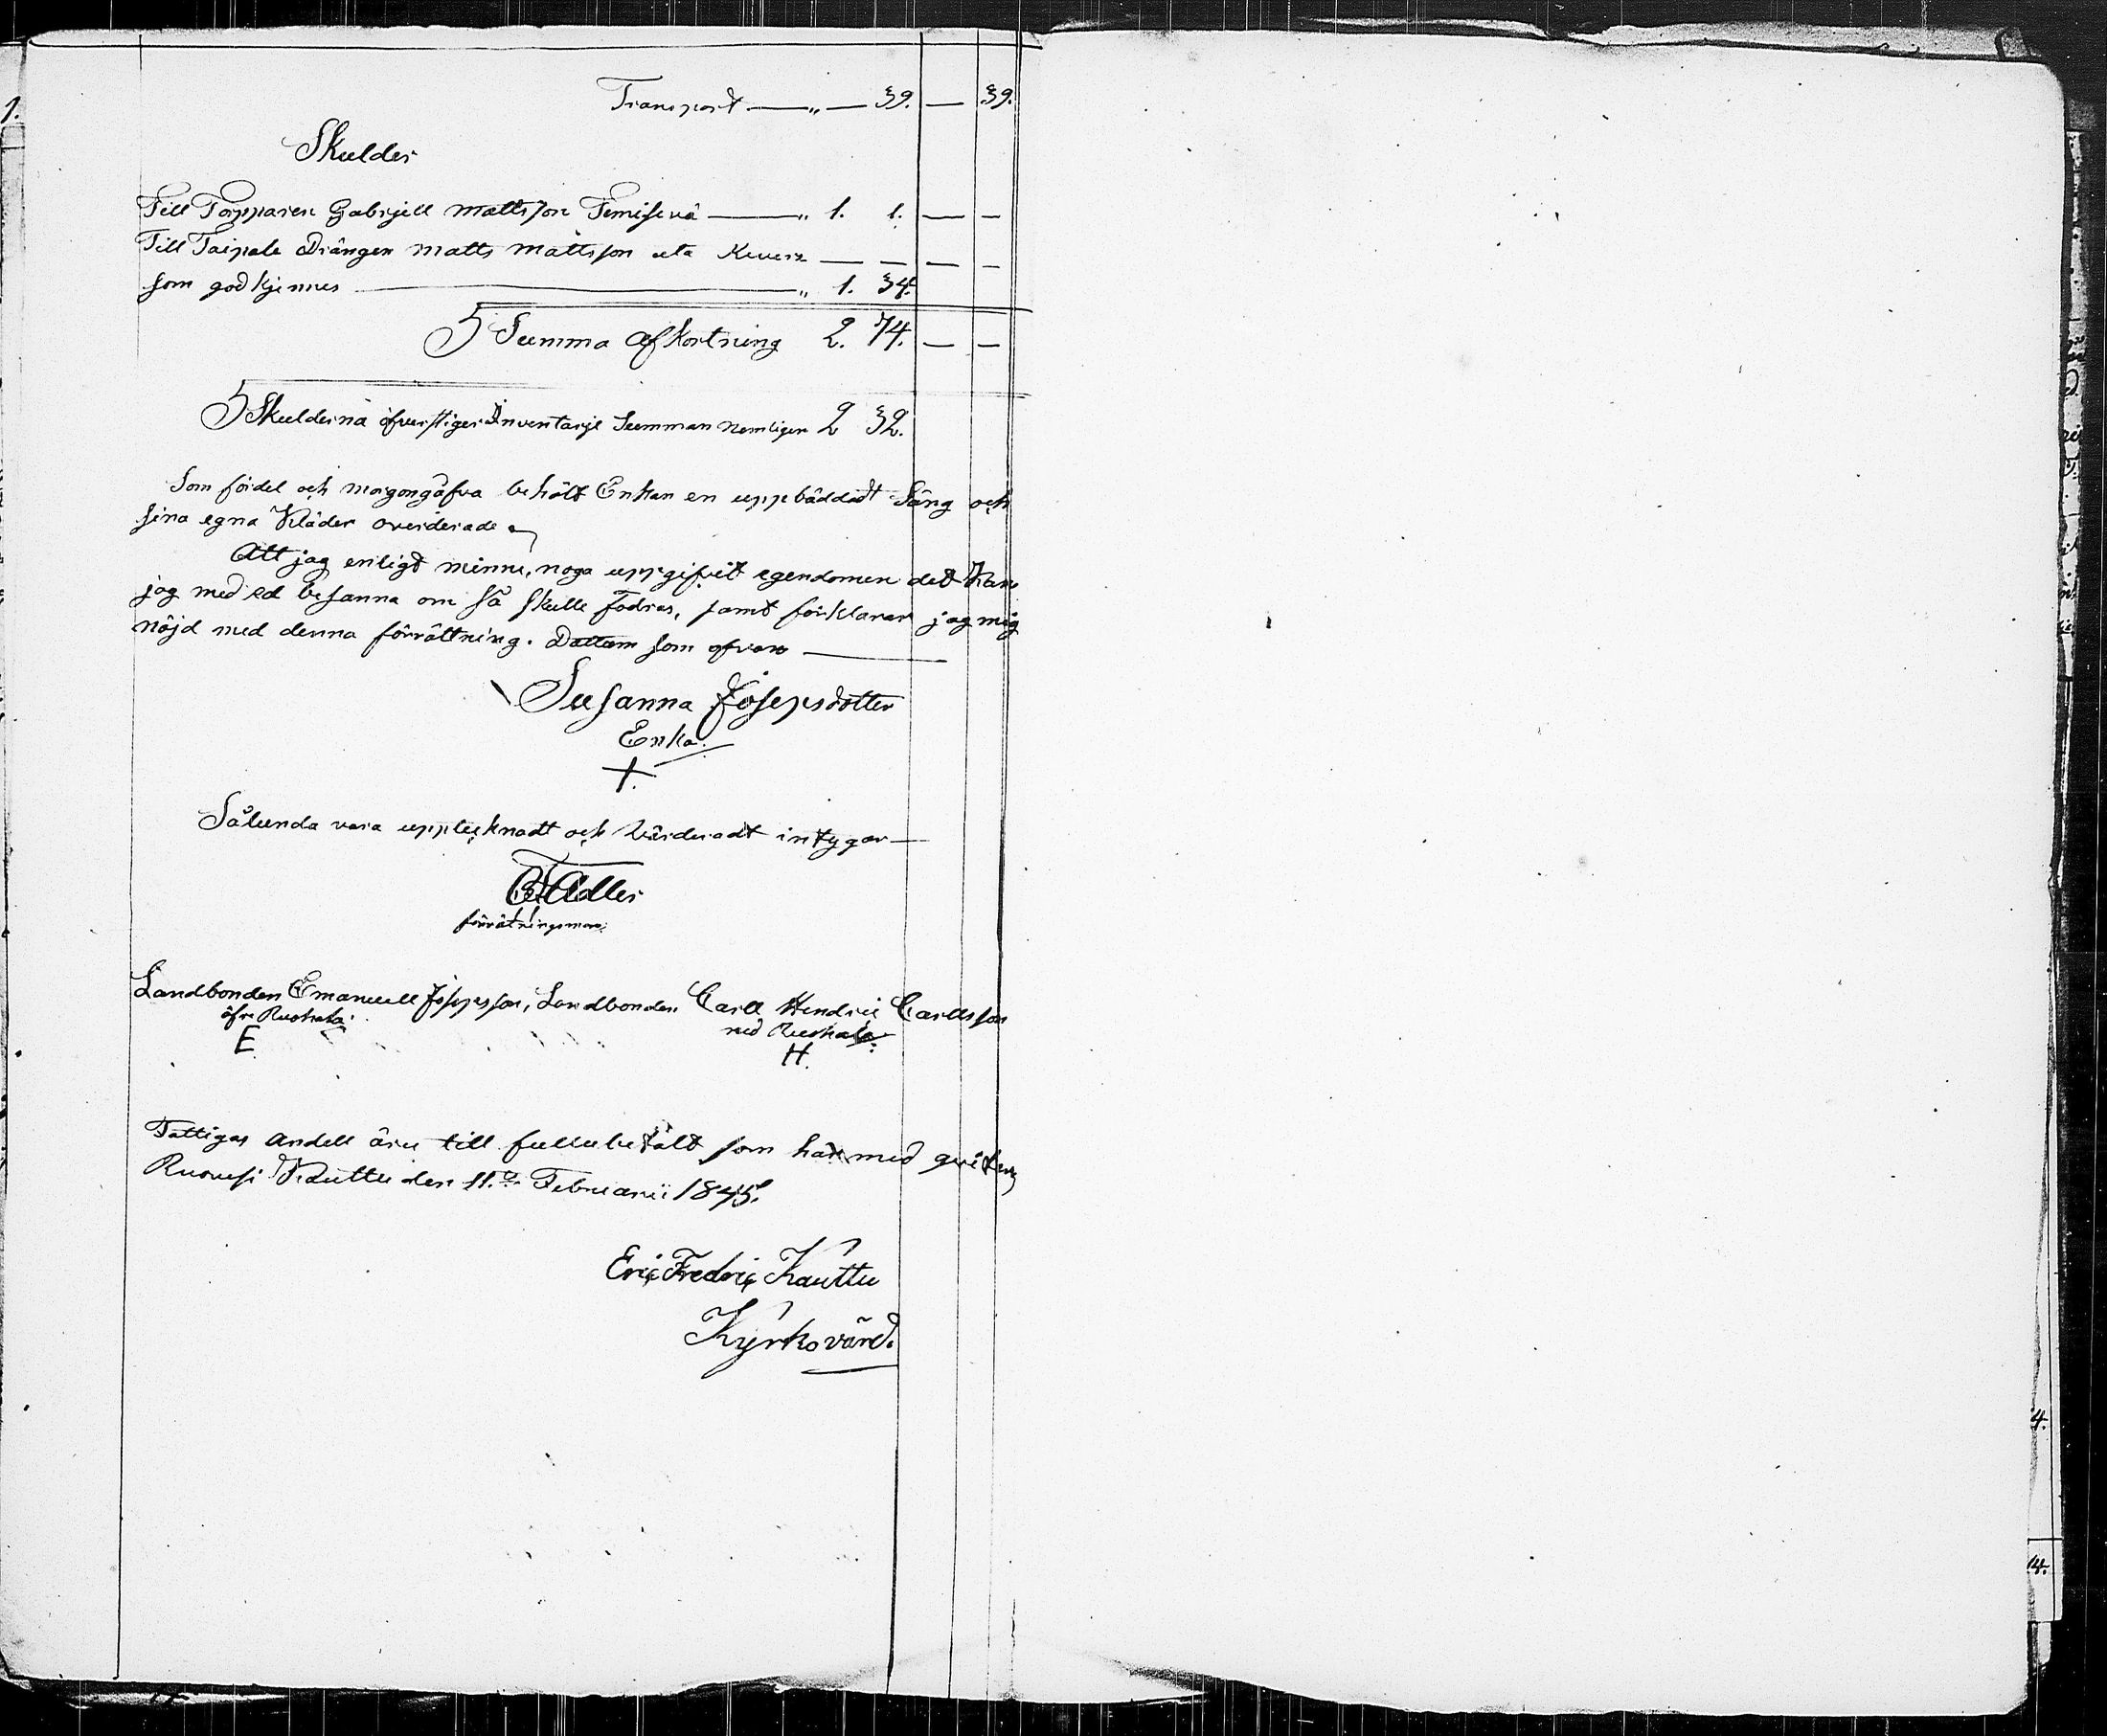 1.
Transport — „ — 39. — 39.
Skulder
Till Torpparen Gabrjell Mattsson — „ 1. 1. — —
Till Taipale Drängen Matts Mattsson uta — — — —
som godkjennes — „ 1. 34.
S Summa Afkortning 2. 74. — —
S Skulderna öfverstiger Inventarje Summan nemligen 2 32.
Som fördel och morgongåfva behölt Enkan en uppbäddadt Säng och
sina egna Kläder overderade
Att jag enligt minne, noga uppgifvit egendomen det kan
jag med ed besanna om så skulle fodras, samt förklarar jag mig
nöjd med denna förrättning. Dattum som ofvan —
Susanna Josepsdotter
Enka.
+.
Sålunda vara upptecknadt och Värderadt intygar —
Adler
förrätningsman.
Landbonden Emanuell Josepsson, Landbonden Carll Hendric Carllsson
öfre Ruohala. ned Ruohala.
E. H.
Fattigas andell äru till fullu betalt som här med
Ruovesi Kauttu den 11.te Februarii 1845.
Eric Fredric Kauttu
Kyrkovärd.
4.
4.